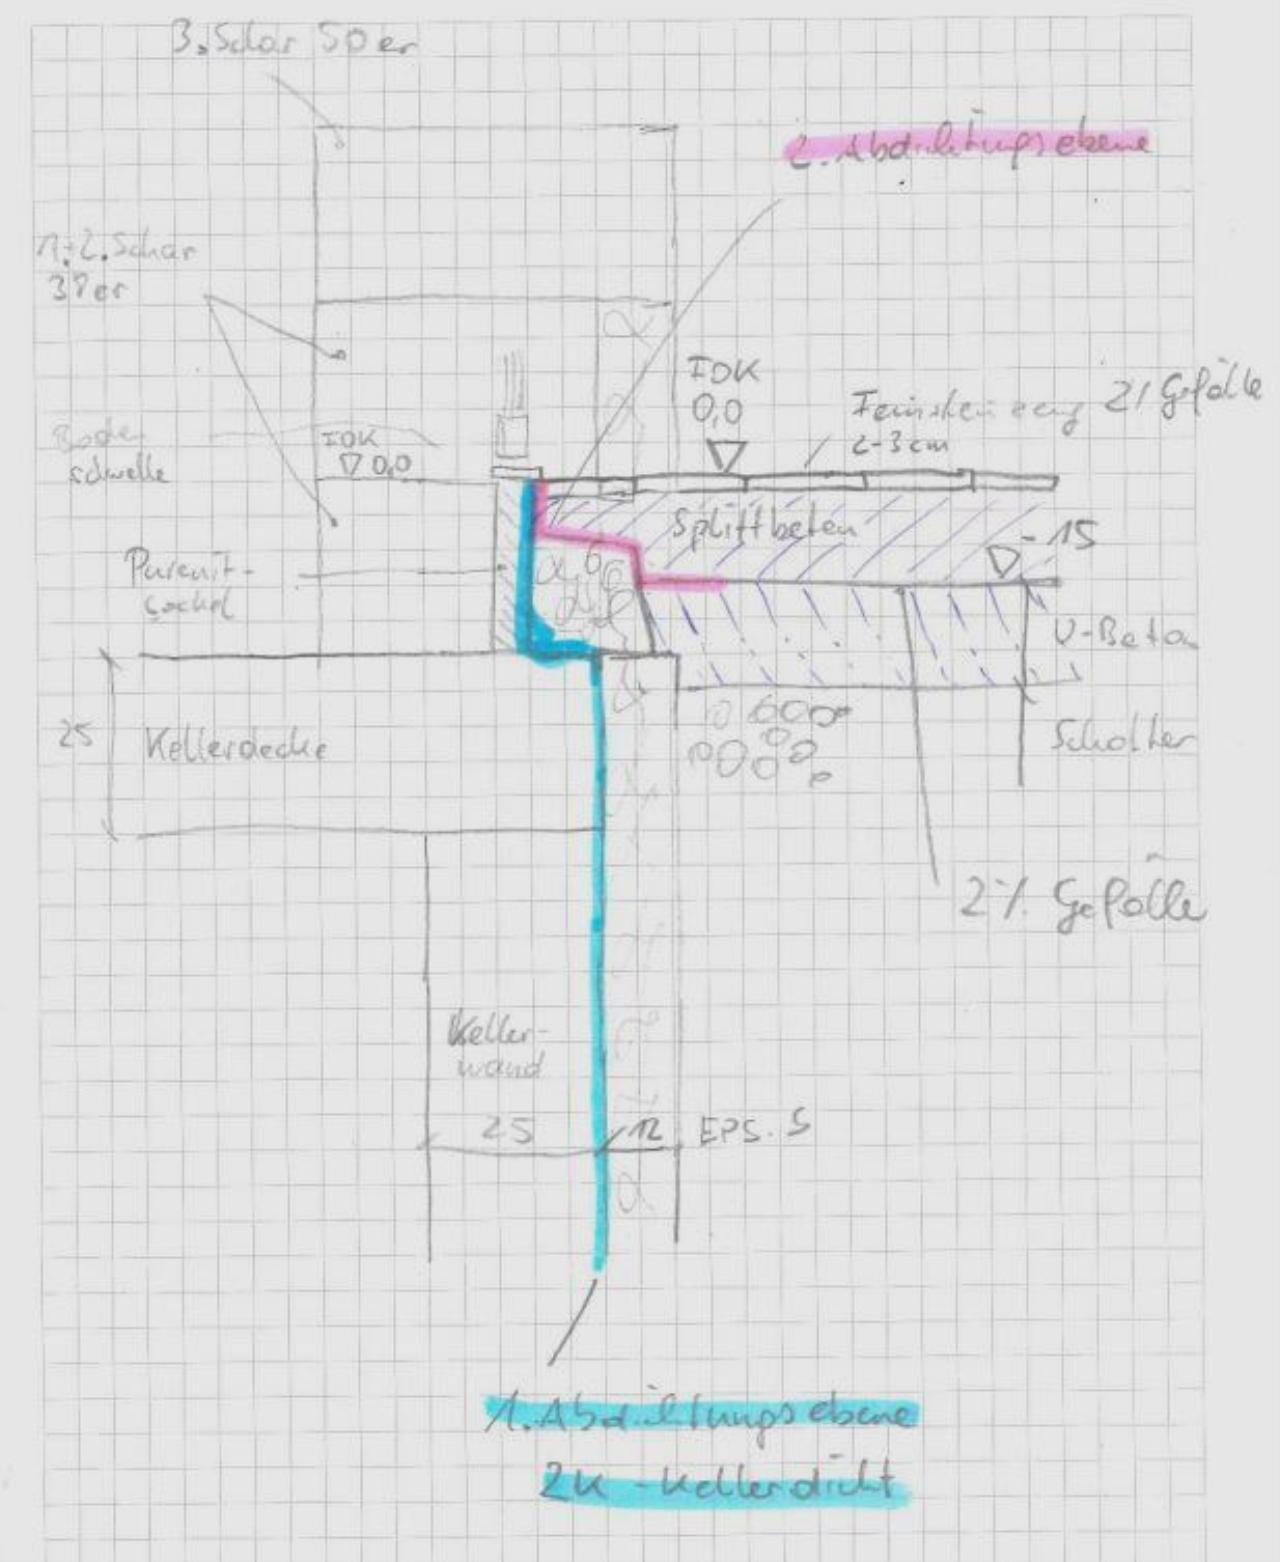 3. Schar 50er
2. Abdichtungsebene
1.+2. Schar
38er
FOK
0,0
Feinsteinzeug 2% Gefälle
2-3cm
Boden
schwelle
FOK
0,0
Splittbeton
-15
Purenit-
sockel
U-Beton
25
Kellerdecke
Schotter
2% Gefälle
Keller-
wand
25
12
EPS. S
1. Abdichtungsebene
2K-Kellerdicht